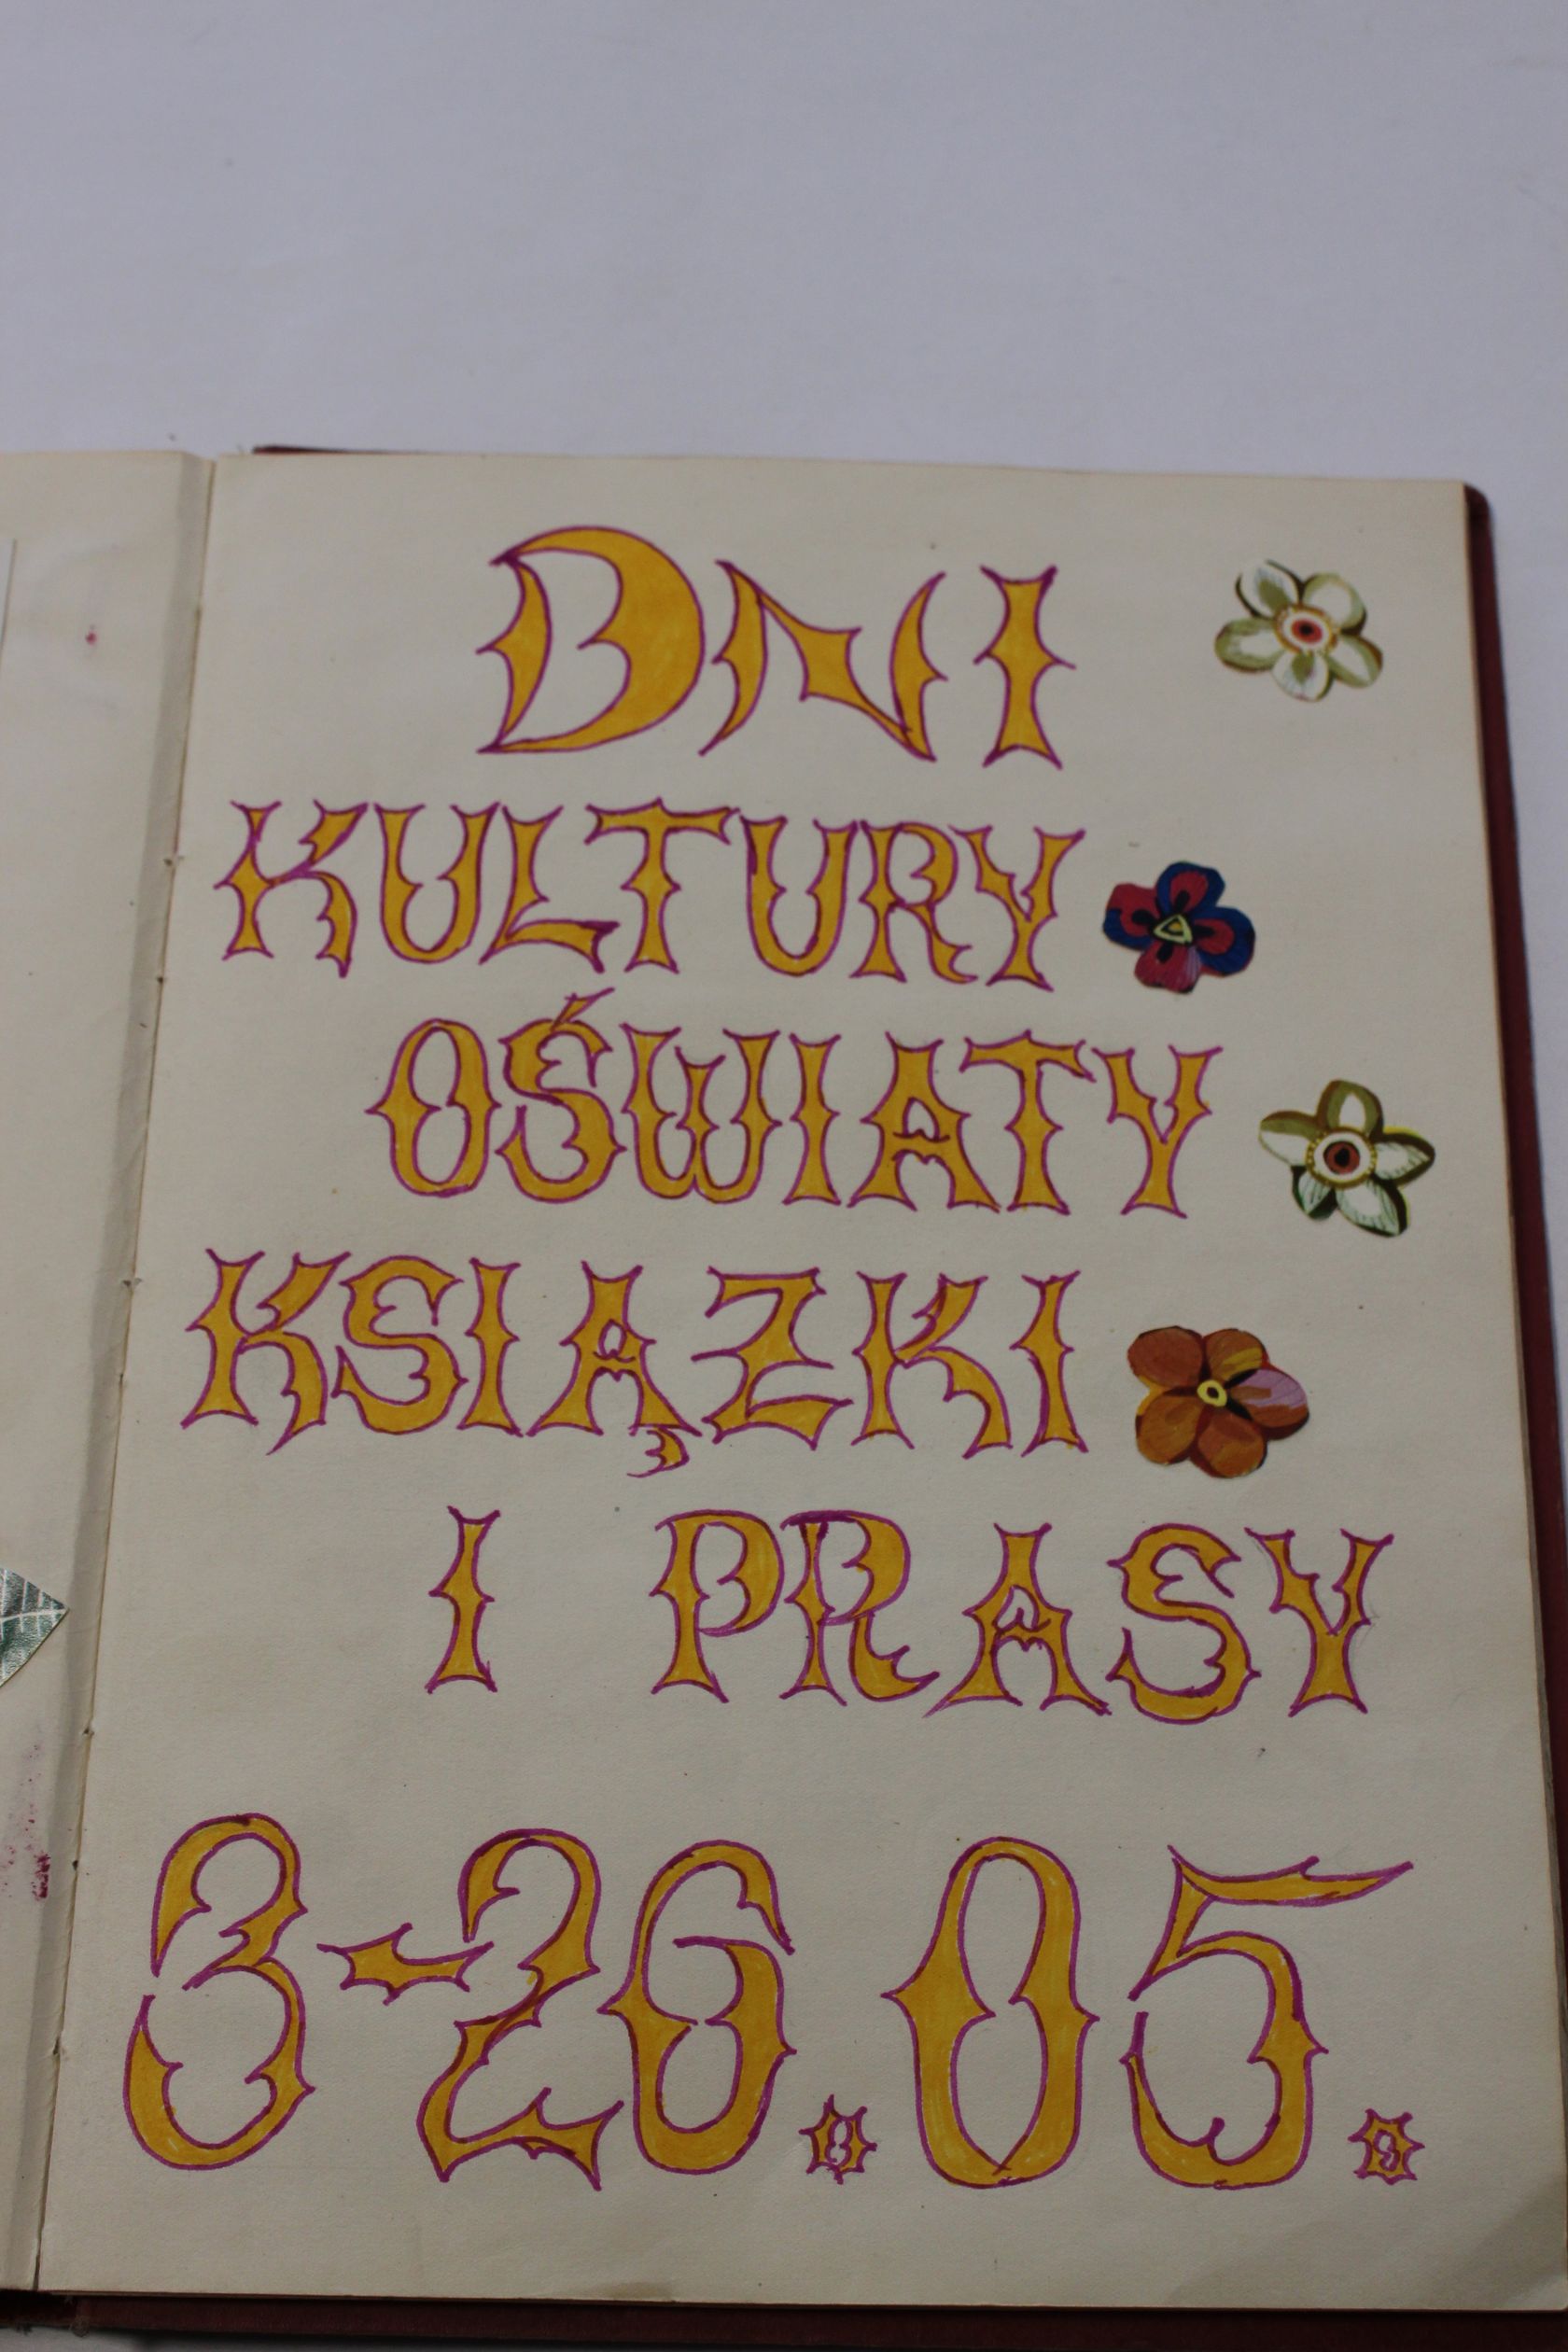 DNI
KULTURY
OŚWIATY
KSIĄZKI
I PRASY
3-26.05.